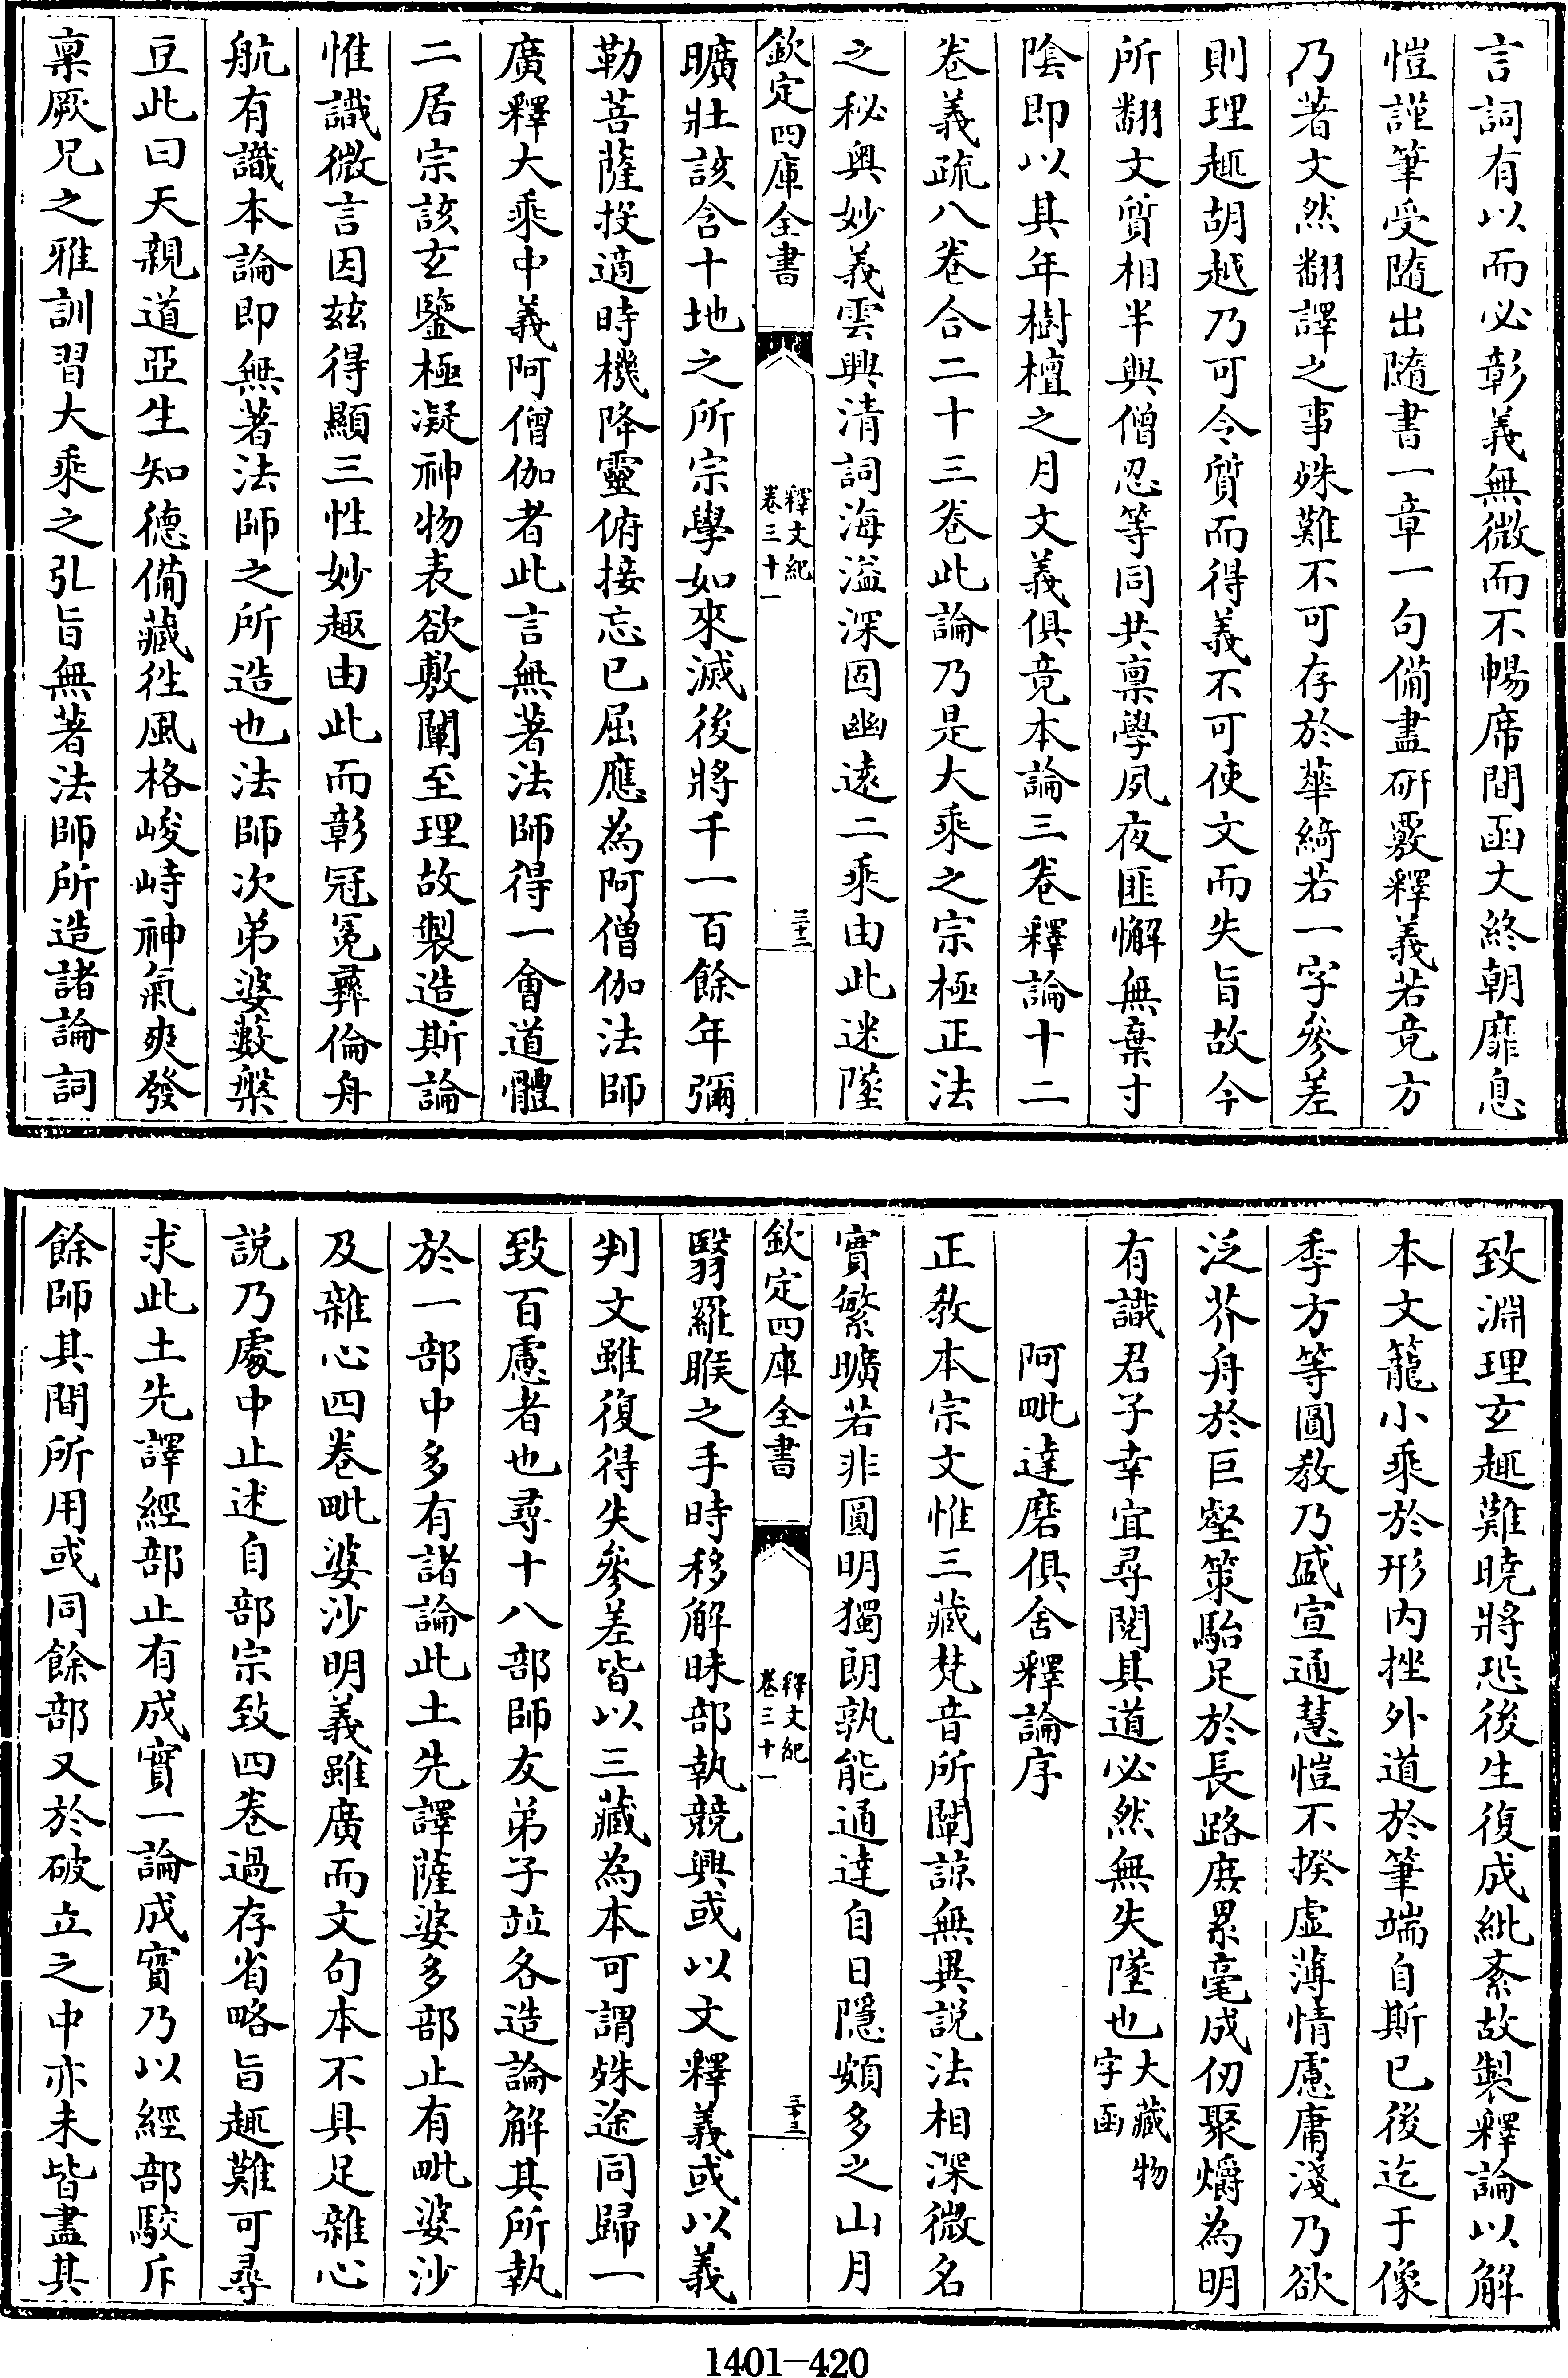 言詞有以而必彰義無微而不暢席間函丈終朝靡息
愷謹筆受隨出隨書一章一句備盡研覈釋義若竟方
乃著文然翻譯之事殊難不可存於華綺若一字參差
則理趣胡越乃可令質而得義不可使文而失旨故今
所翻文質相半與僧忍等同共稟學夙夜匪懈無棄寸
陰即以其年樹檀之月文義俱竟本論三卷釋論十二
卷義疏八卷合二十三卷此論乃是大乘之宗極正法
之秘奥妙義雲興清詞海溢深固幽逺二乘由此迷墜
欽定四庫全書
釋文紀
卷三十一
三十二
曠壯該含十地之所宗學如來滅後將千一百餘年彌
勒菩薩投適時機降靈俯接忘已屈應為阿僧伽法師
廣釋大乘中義阿僧伽者此言無著法師得一會道體
二居宗該玄鑒極凝神物表欲敷闡至理故製造斯論
惟識微言因兹得顯三性妙趣由此而彰冠冕彛倫舟
航有識本論即無著法師之所造也法師次弟婆藪槃
豆此曰天親道亞生知德備藏徃風格峻峙神氣爽發
稟厥兄之雅訓習大乘之弘旨無著法師所造諸論詞
致淵理玄趣難曉將恐後生復成紕紊故製釋論以解
本文籠小乘於形内挫外道於筆端自斯已後迄于像
季方等圓教乃盛宣通慧愷不揆虚薄情慮庸淺乃欲
泛芥舟於巨壑策駘足於長路庻累毫成仞聚爝為明
有識君子幸宜尋閱其道必然無失墜也大藏物
字函
阿毗達磨俱舍釋論序
正教本宗文惟三藏梵音所闡諒無異説法相深微名
實繁曠若非圓明獨朗孰能通達自日隱頞多之山月
欽定四庫全書
釋文紀
卷三十一
三十三
翳羅睺之手時移解昧部執競興或以文釋義或以義
判文雖復得失參差皆以三藏為本可謂殊途同歸一
致百慮者也尋十八部師友弟子竝各造論解其所執
於一部中多有諸論此土先譯薩婆多部止有毗婆沙
及雜心四卷毗婆沙明義雖廣而文句本不具足雜心
説乃處中止述自部宗致四卷過存省略旨趣難可尋
求此土先譯經部止有成實一論成實乃以經部駮斥
餘師其間所用或同餘部又於破立之中亦未皆盡其
1401-420